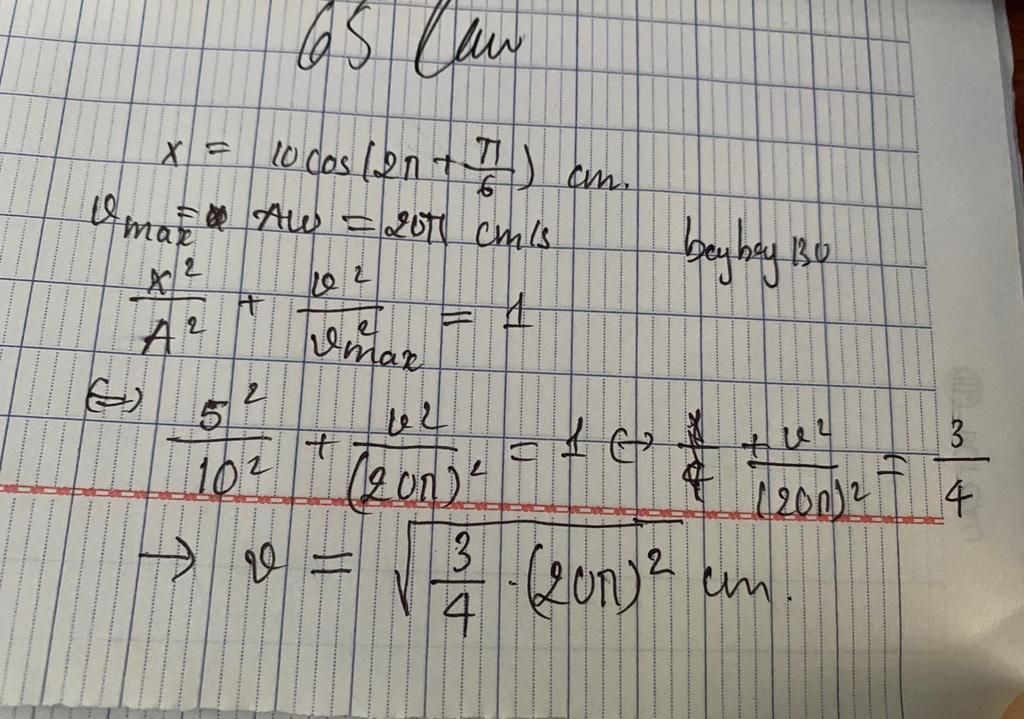 65 Câu
x = 10cos(2π + π/6) cm.
vmax = Aω = 20π cm/s
beybey130
x²/A² + v²/vmax² = 1
⇔ 5²/10² + v²/(20π)² = 1 ⇔ + v²/(20π)² = 3/4
→ v = √(3/4 · (20π)²) cm.